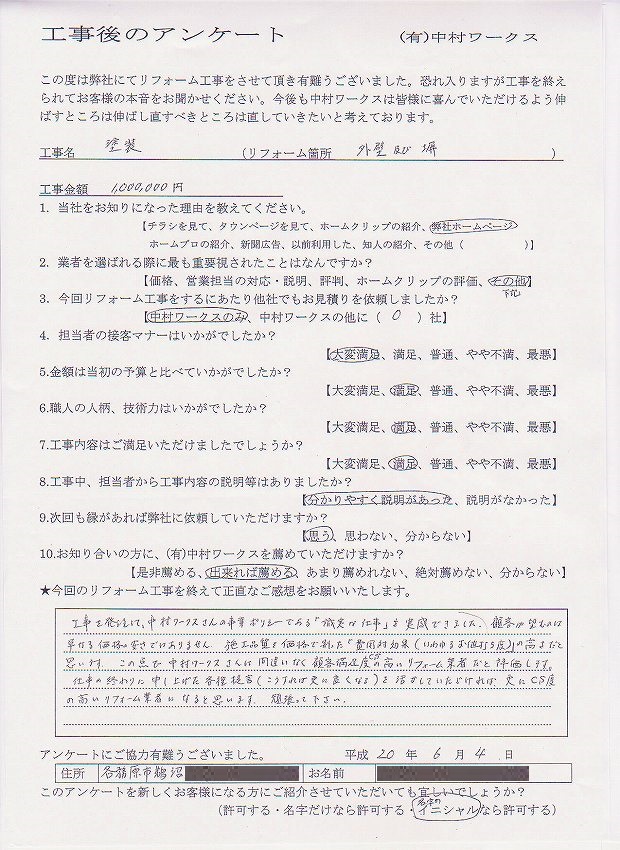 工事後のアンケート (有)中村ワークス
この度は弊社にてリフォーム工事をさせて頂き有難うございました。恐れ入りますが工事を終え
られてお客様の本音をお聞かせください。今後も中村ワークスは皆様に喜んでいただけるよう伸
ばすところは伸ばし直すべきところは直していきたいと考えております。
工事名 塗装 (リフォーム箇所 外壁及び塀 )
工事金額 1,000,000円
1. 当社をお知りになった理由を教えてください。
【チラシを見て、タウンページを見て、ホームクリップの紹介、弊社ホームページ
ホームプロの紹介、新聞広告、以前利用した、知人の紹介、その他( )】
2. 業者を選ばれる際に最も重要視されたことはなんですか?
【価格、営業担当の対応・説明、評判、ホームクリップの評価、その他】
下記
3. 今回リフォーム工事をするにあたり他社でもお見積りを依頼しましたか?
【中村ワークスのみ、中村ワークスの他に( 0 )社】
4. 担当者の接客マナーはいかがでしたか?
【大変満足、満足、普通、やや不満、最悪】
5.金額は当初の予算と比べていかがでしたか?
【大変満足、満足、普通、やや不満、最悪】
6.職人の人柄、技術力はいかがでしたか?
【大変満足、満足、普通、やや不満、最悪】
7.工事内容はご満足いただけましたでしょうか?
【大変満足、満足、普通、やや不満、最悪】
8.工事中、担当者から工事内容の説明等はありましたか?
【分かりやすく説明があった、説明がなかった】
9.次回も縁があれば弊社に依頼していただけますか?
【思う、思わない、分からない】
10.お知り合いの方に、(有)中村ワークスを薦めていただけますか?
【是非薦める、出来れば薦める、あまり薦めれない、絶対薦めない、分からない】
★今回のリフォーム工事を終えて正直なご感想をお願いいたします。
工事を発注して、中村ワークスさんの事業ポリシーである「誠実な仕事」を実感できました。顧客が望むものは
単なる価格の安さではありません。施工品質を価格で割った「費用対効果(いわゆるお値打ち度)」の高さだと
思います。この点で中村ワークスさんは間違いなく顧客満足度の高いリフォーム業者だと評価します。
仕事の終わりに申し上げた各種提言(こうすれば更に良くなる)を活かしていただければ、更にCS度
の高いリフォーム業者になると思います。頑張って下さい。
アンケートにご協力有難うございました。 平成 20 年 6 月 4 日
住所 各務原市鵜沼 お名前
このアンケートを新しくお客様になる方にご紹介させていただいても宜しいでしょうか?
(許可する・名字だけなら許可する・イニシャルなら許可する)